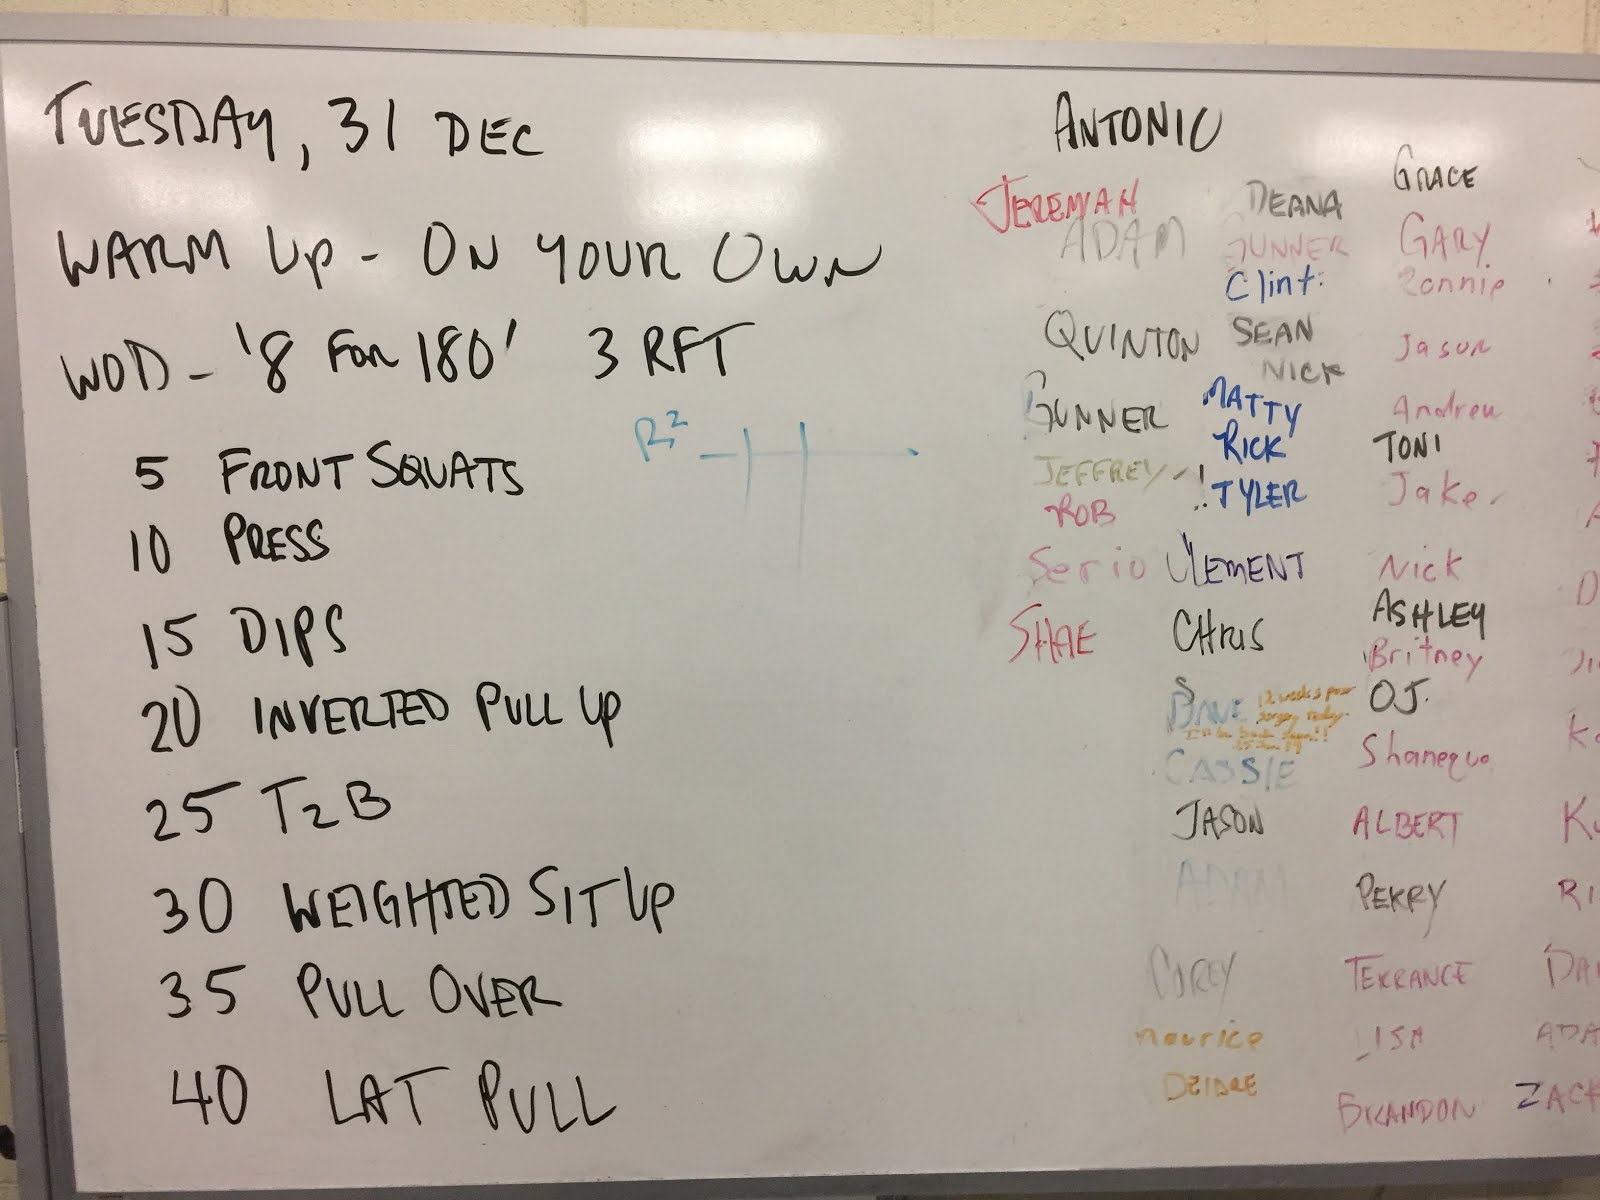 TUESDAY, 31 DEC
WARM UP - ON YOUR OWN
WOD - '8 FOR 180' 3 RFT
R²
5 FRONT SQUATS
10 PRESS
15 DIPS
20 INVERTED PULL UP
25 T2B
30 WEIGHTED SIT UP
35 PULL OVER
40 LAT PULL
ANTONIO
JEREMIAH
ADAM
QUINTON
GUNNER
JEFFREY
ROB
Serio
SHAE
DEANA
GUNNER
Clint
SEAN
NICK
MATTY
RICK
TYLER
CLEMENT
CHRIS
DAVE
CASSIE
JASON
ADAM
COREY
maurice
DEIDRE
GRACE
GARY
Ronnie
Jason
Andrew
TONI
Jake
Nick
ASHLEY
Britney
OJ.
Shanequa
ALBERT
PERRY
TERRANCE
LISA
BRANDON
ZACK